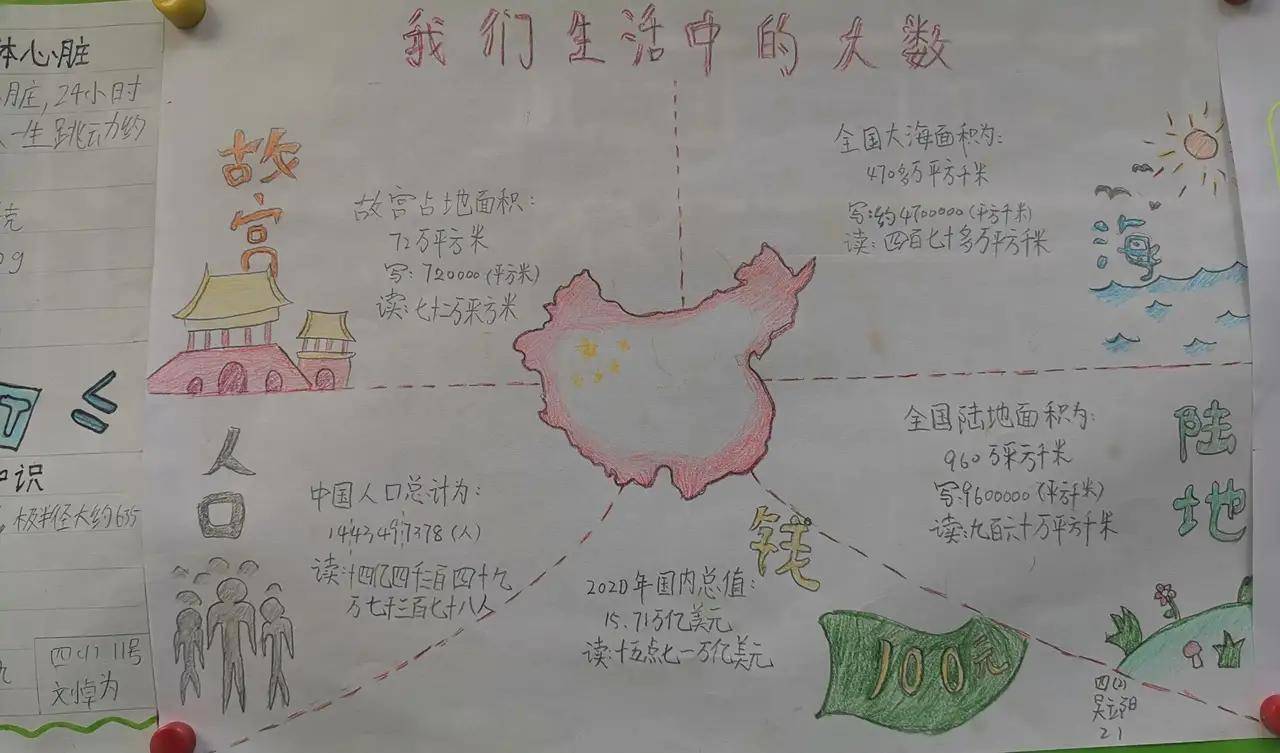 我们生活中的大数
体心脏
脏,24小时
一生跳动约
克
0g
≤
识
极半径大约635
四(1) 11号
文悼为
故宫
故宫占地面积:
72万平方米
写:720000(平方米)
读:七十二万平方米
全国大海面积为:
470多万平方千米
写:约4700000(平方千米)
读:四百七十多万平方千米
海
人口
中国人口总计为:
1443497378(人)
读:十四亿四千三百四十九
万七千三百七十八人
钱
2020年国内总值:
15.71万亿美元
读:十五点七一万亿美元
100元
全国陆地面积为:
960万平方千米
写:9600000(平方千米)
读:九百六十万平方千米
陆地
四(2)
21